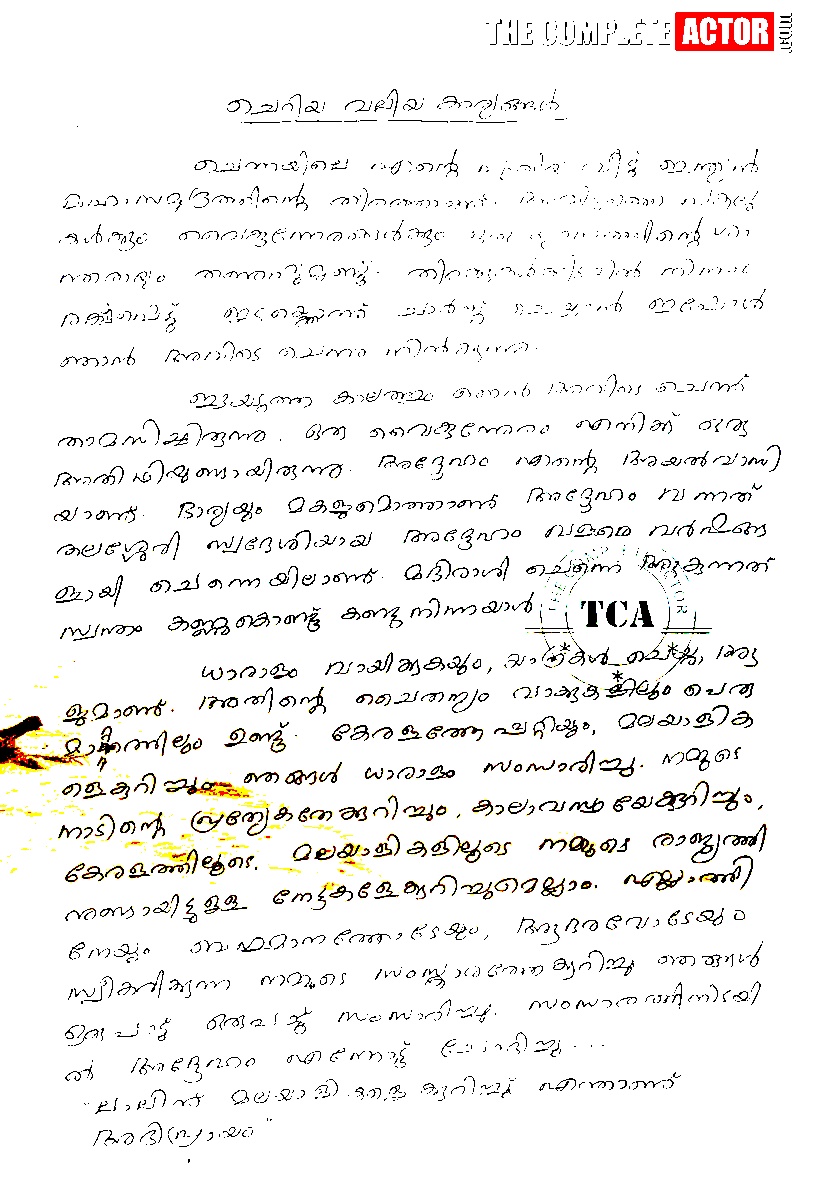 THE COMPLETE ACTOR
ചെറിയ വലിയ കാര്യങ്ങൾ
ചെന്നൈയിലെ എന്റെ വീട് ഇന്ത്യൻ
മഹാസമുദ്രത്തിന്റെ തീരത്താണ്.
കൾക്കും വൈകുന്നേരങ്ങൾക്കും
തിരക്കുകൾക്കിടയിൽ നിന്നും
രക്ഷപ്പെട്ട് ഇടയ്ക്കൊന്ന് ചാർജ്ജ് ചെയ്യാൻ ഇപ്പോൾ
ഞാൻ അവിടെ ചെന്നു നിൽക്കുന്നു.
ഈയടുത്ത കാലത്തും ഞാൻ അവിടെ ചെന്ന്
താമസിച്ചിരുന്നു. ഒരു വൈകുന്നേരം എനിക്ക് ഒരു
അതിഥിയുണ്ടായിരുന്നു. അദ്ദേഹം എന്റെ അയൽവാസി
യാണ്. ഭാര്യയും മകളുമൊത്താണ് അദ്ദേഹം വന്നത്
തലശ്ശേരി സ്വദേശിയായ അദ്ദേഹം വളരെ വർഷങ്ങ
ളായി ചെന്നൈയിലാണ്. മദിരാശി ചെന്നൈ ആകുന്നത്
സ്വന്തം കണ്ണുകൊണ്ട് കണ്ടു നിന്നയാൾ
TCA
ധാരാളം വായിക്കുകയും, യാത്രകൾ ചെയ്യു
ളുമാണ്. അതിന്റെ ചൈതന്യം വാക്കുകളിലും പെരു
മാറ്റത്തിലും ഉണ്ട്. കേരളത്തേപ്പറ്റിയും, മലയാളിക
ളെകുറിച്ചും ഞങ്ങൾ ധാരാളം സംസാരിച്ചു. നമ്മുടെ
നാടിന്റെ പ്രത്യേകതകുറിച്ചും, കാലാവസ്ഥയേക്കുറിച്ചും,
കേരളത്തിലൂടെ, മലയാളികളിലൂടെ നമ്മുടെ രാജ്യത്തി
നുണ്ടായിട്ടുള്ള നേട്ടങ്ങളേക്കുറിച്ചുമെല്ലാം. എല്ലാത്തി
നേയും ബഹുമാനത്തോടേയും, ആദരവോടേയും
സ്വീകരിക്കുന്ന നമ്മുടെ സംസ്ക്കാരത്തേകുറിച്ചു ഞങ്ങൾ
ഒരുപാട് ഒരുപാട് സംസാരിച്ചു. സംസാരത്തിനിടയി
ൽ അദ്ദേഹം എന്നോട് ചോദിച്ചു...
"ലാലിന് മലയാളികളെ കുറിച്ച് എന്താണ്
അഭിപ്രായം"